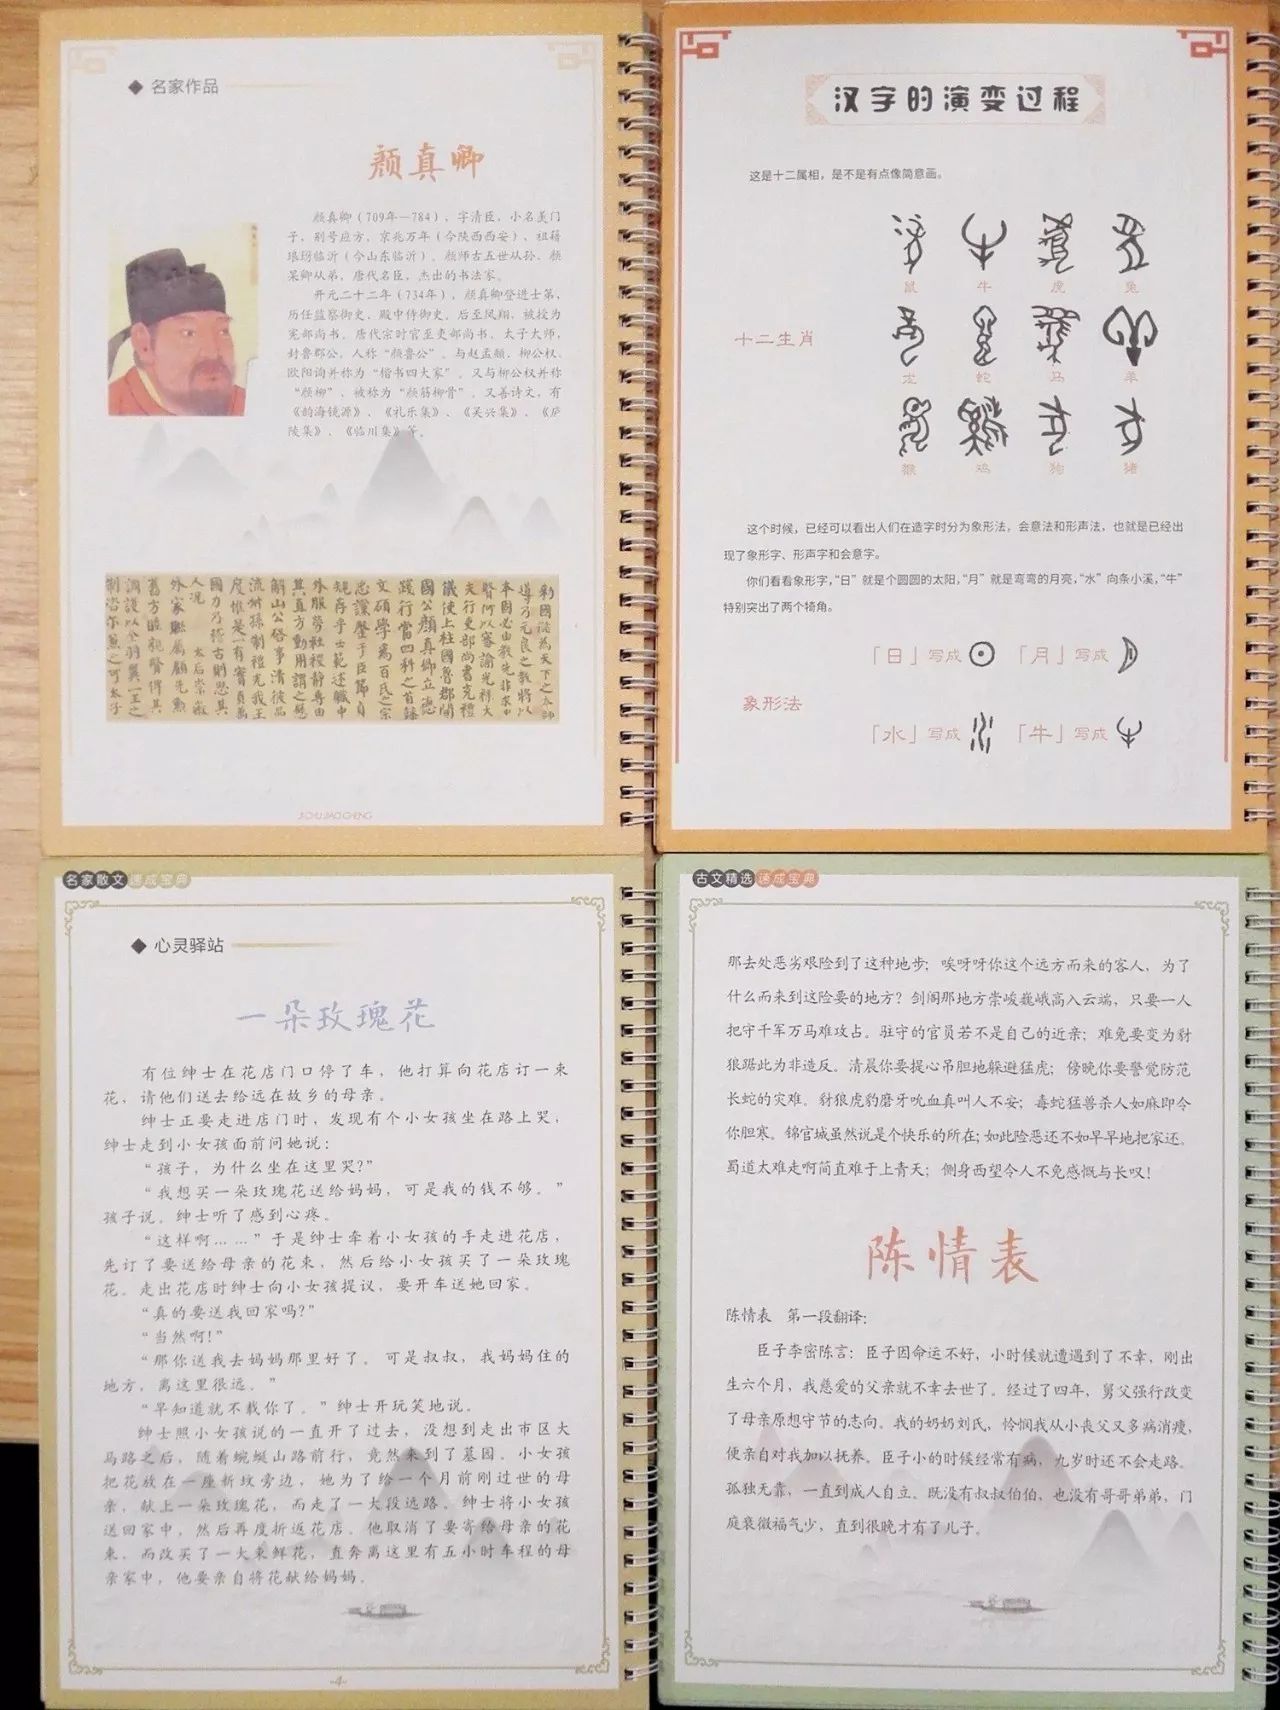 ◆ 名家作品
颜真卿
颜真卿（709年—784），字清臣，小名羡门
子，别号应方，京兆万年（今陕西西安），祖籍
琅玡临沂（今山东临沂）。颜师古五世从孙、颜
杲卿从弟，唐代名臣，杰出的书法家。
开元二十二年（734年），颜真卿登进士第，
历任监察御史、殿中侍御史。后至凤翔，被授为
宪部尚书。唐代宗时官至吏部尚书、太子太师，
封鲁郡公，人称“颜鲁公”。与赵孟頫、柳公权、
欧阳询并称为“楷书四大家”。又与柳公权并称
“颜柳”，被称为“颜筋柳骨”。又善诗文，有
《韵海镜源》、《礼乐集》、《吴兴集》、《庐
陵集》、《临川集》等。
汉字的演变过程
这是十二属相，是不是有点像简意画。
鼠 牛 虎 兔
十二生肖
龙 蛇 马 羊
猴 鸡 狗 猪
这个时候，已经可以看出人们在造字时分为象形法，会意法和形声法，也就是已经出
现了象形字、形声字和会意字。
你们看看象形字，“日”就是个圆圆的太阳，“月”就是弯弯的月亮，“水”向条小溪，“牛”
特别突出了两个犄角。
「日」写成 「月」写成
象形法
「水」写成 「牛」写成
名家散文速成宝典
◆ 心灵驿站
一朵玫瑰花
有位绅士在花店门口停了车，他打算向花店订一束
花，请他们送去给远在故乡的母亲。
绅士正要走进店门时，发现有个小女孩坐在路上哭，
绅士走到小女孩面前问她说：
“孩子，为什么坐在这里哭?”
“我想买一朵玫瑰花送给妈妈，可是我的钱不够。”
孩子说。绅士听了感到心疼。
“这样啊……”于是绅士牵着小女孩的手走进花店，
先订了要送给母亲的花束，然后给小女孩买了一朵玫瑰
花。走出花店时绅士向小女孩提议，要开车送她回家。
“真的要送我回家吗?”
“当然啊!”
“那你送我去妈妈那里好了。可是叔叔，我妈妈住的
地方，离这里很远。”
“早知道就不载你了。”绅士开玩笑地说。
绅士照小女孩说的一直开了过去，没想到走出市区大
马路之后，随着蜿蜒山路前行，竟然来到了墓园。小女孩
把花放在一座新坟旁边，她为了给一个月前刚过世的母
亲，献上一朵玫瑰花，而走了一大段远路。绅士将小女孩
送回家中，然后再度折返花店。他取消了要寄给母亲的花
束，而改买了一大束鲜花，直奔离这里有五小时车程的母
亲家中，他要亲自将花献给妈妈。
-4-
古文精选速成宝典
那去处恶劣艰险到了这种地步；唉呀呀你这个远方而来的客人，为了
什么而来到这险要的地方？剑阁那地方崇峻巍峨高入云端，只要一人
把守千军万马难攻占。驻守的官员若不是自己的近亲；难免要变为豺
狼踞此为非造反。清晨你要提心吊胆地躲避猛虎；傍晚你要警觉防范
长蛇的灾难。豺狼虎豹磨牙吮血真叫人不安；毒蛇猛兽杀人如麻即令
你胆寒。锦官城虽然说是个快乐的所在；如此险恶还不如早早地把家还。
蜀道太难走啊简直难于上青天；侧身西望令人不免感慨与长叹！
陈情表
陈情表 第一段翻译：
臣子李密陈言：臣子因命运不好，小时候就遭遇到了不幸，刚出
生六个月，我慈爱的父亲就不幸去世了。经过了四年，舅父强行改变
了母亲原想守节的志向。我的奶奶刘氏，怜悯我从小丧父又多病消瘦，
便亲自对我加以抚养。臣子小的时候经常有病，九岁时还不会走路。
孤独无靠，一直到成人自立。既没有叔叔伯伯，也没有哥哥弟弟，门
庭衰微福气少，直到很晚才有了儿子。